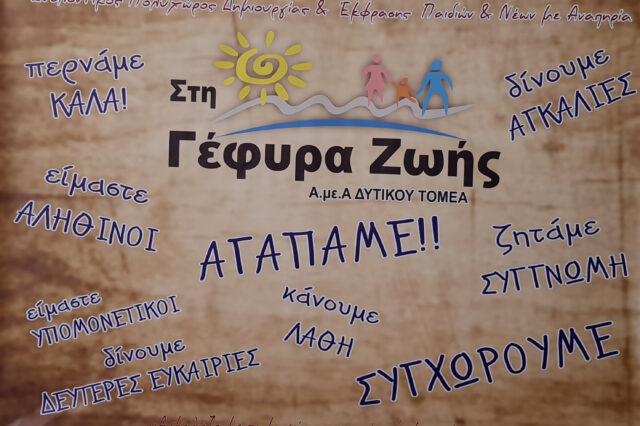 Πολυχώρος Δημιουργίας & Έκφρασης Παιδιών & Νέων με Αναπηρία
περνάμε
ΚΑΛΑ!
Στη
Γέφυρα Ζωής
Α.με.Α ΔΥΤΙΚΟΥ ΤΟΜΕΑ
δίνουμε
ΑΓΚΑΛΙΕΣ
είμαστε
ΑΛΗΘΙΝΟΙ
ΑΓΑΠΑΜΕ!!
ζητάμε
ΣΥΓΓΝΩΜΗ
είμαστε
ΥΠΟΜΟΝΕΤΙΚΟΙ
κάνουμε
ΛΑΘΗ
δίνουμε
ΔΕΥΤΕΡΕΣ ΕΥΚΑΙΡΙΕΣ
ΣΥΓΧΩΡΟΥΜΕ